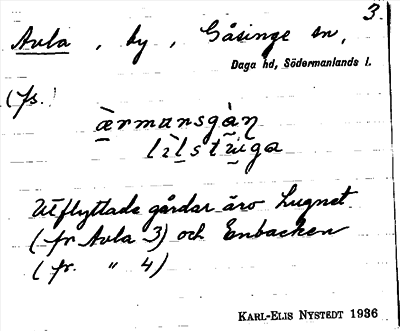 3.
Avla, by, Gåsinge sn,
Daga hd, Södermanlands l.
(fs.)
ærmansgàn
lìlstùga
Utflyttade gårdar äro Lugnet
(fr Avla 3) och Enbacken
(fr. " 4)
KARL-ELIS NYSTEDT 1936